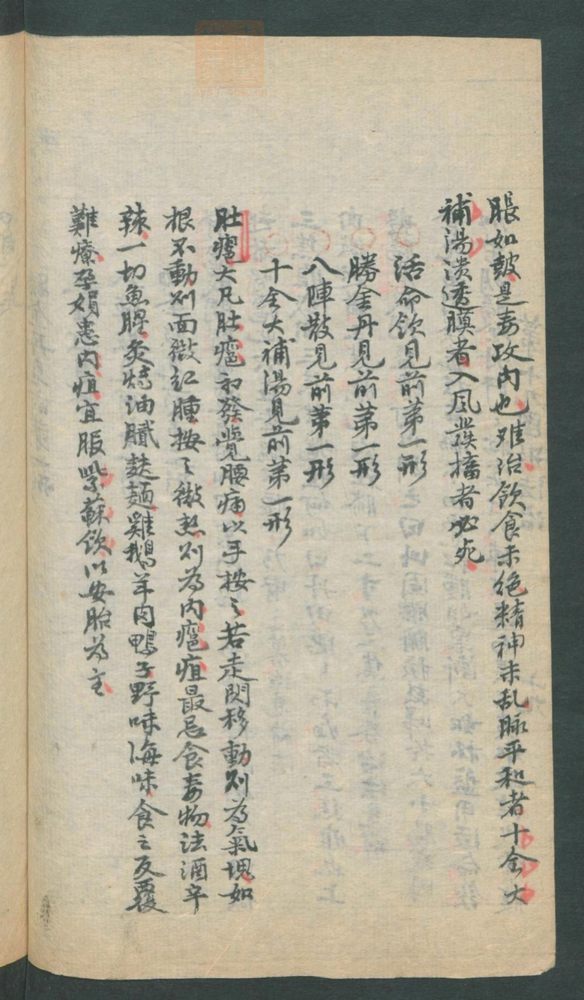 脹如皷是毒攻內也难治飲食未绝精神未乱脉平和者十全大
補湯潰透膜者入風發搐者必死
活命飲見前第一形
勝金丹見前第一形
八陣散見前第一形
十全大補湯見前第一形
肚癰大凡肚癰初發覚腰痛以手按之若走閃移動則為氣塊如
根不動則面微紅腫按之微熱則為內癰疽最忌食毒物法酒辛
辣一切魚腥炙煿油膩麩麺雞鵝羊肉鴨子野味海味食之反覆
難療孕娟患內疽宜服紫蘇飲以安胎為主